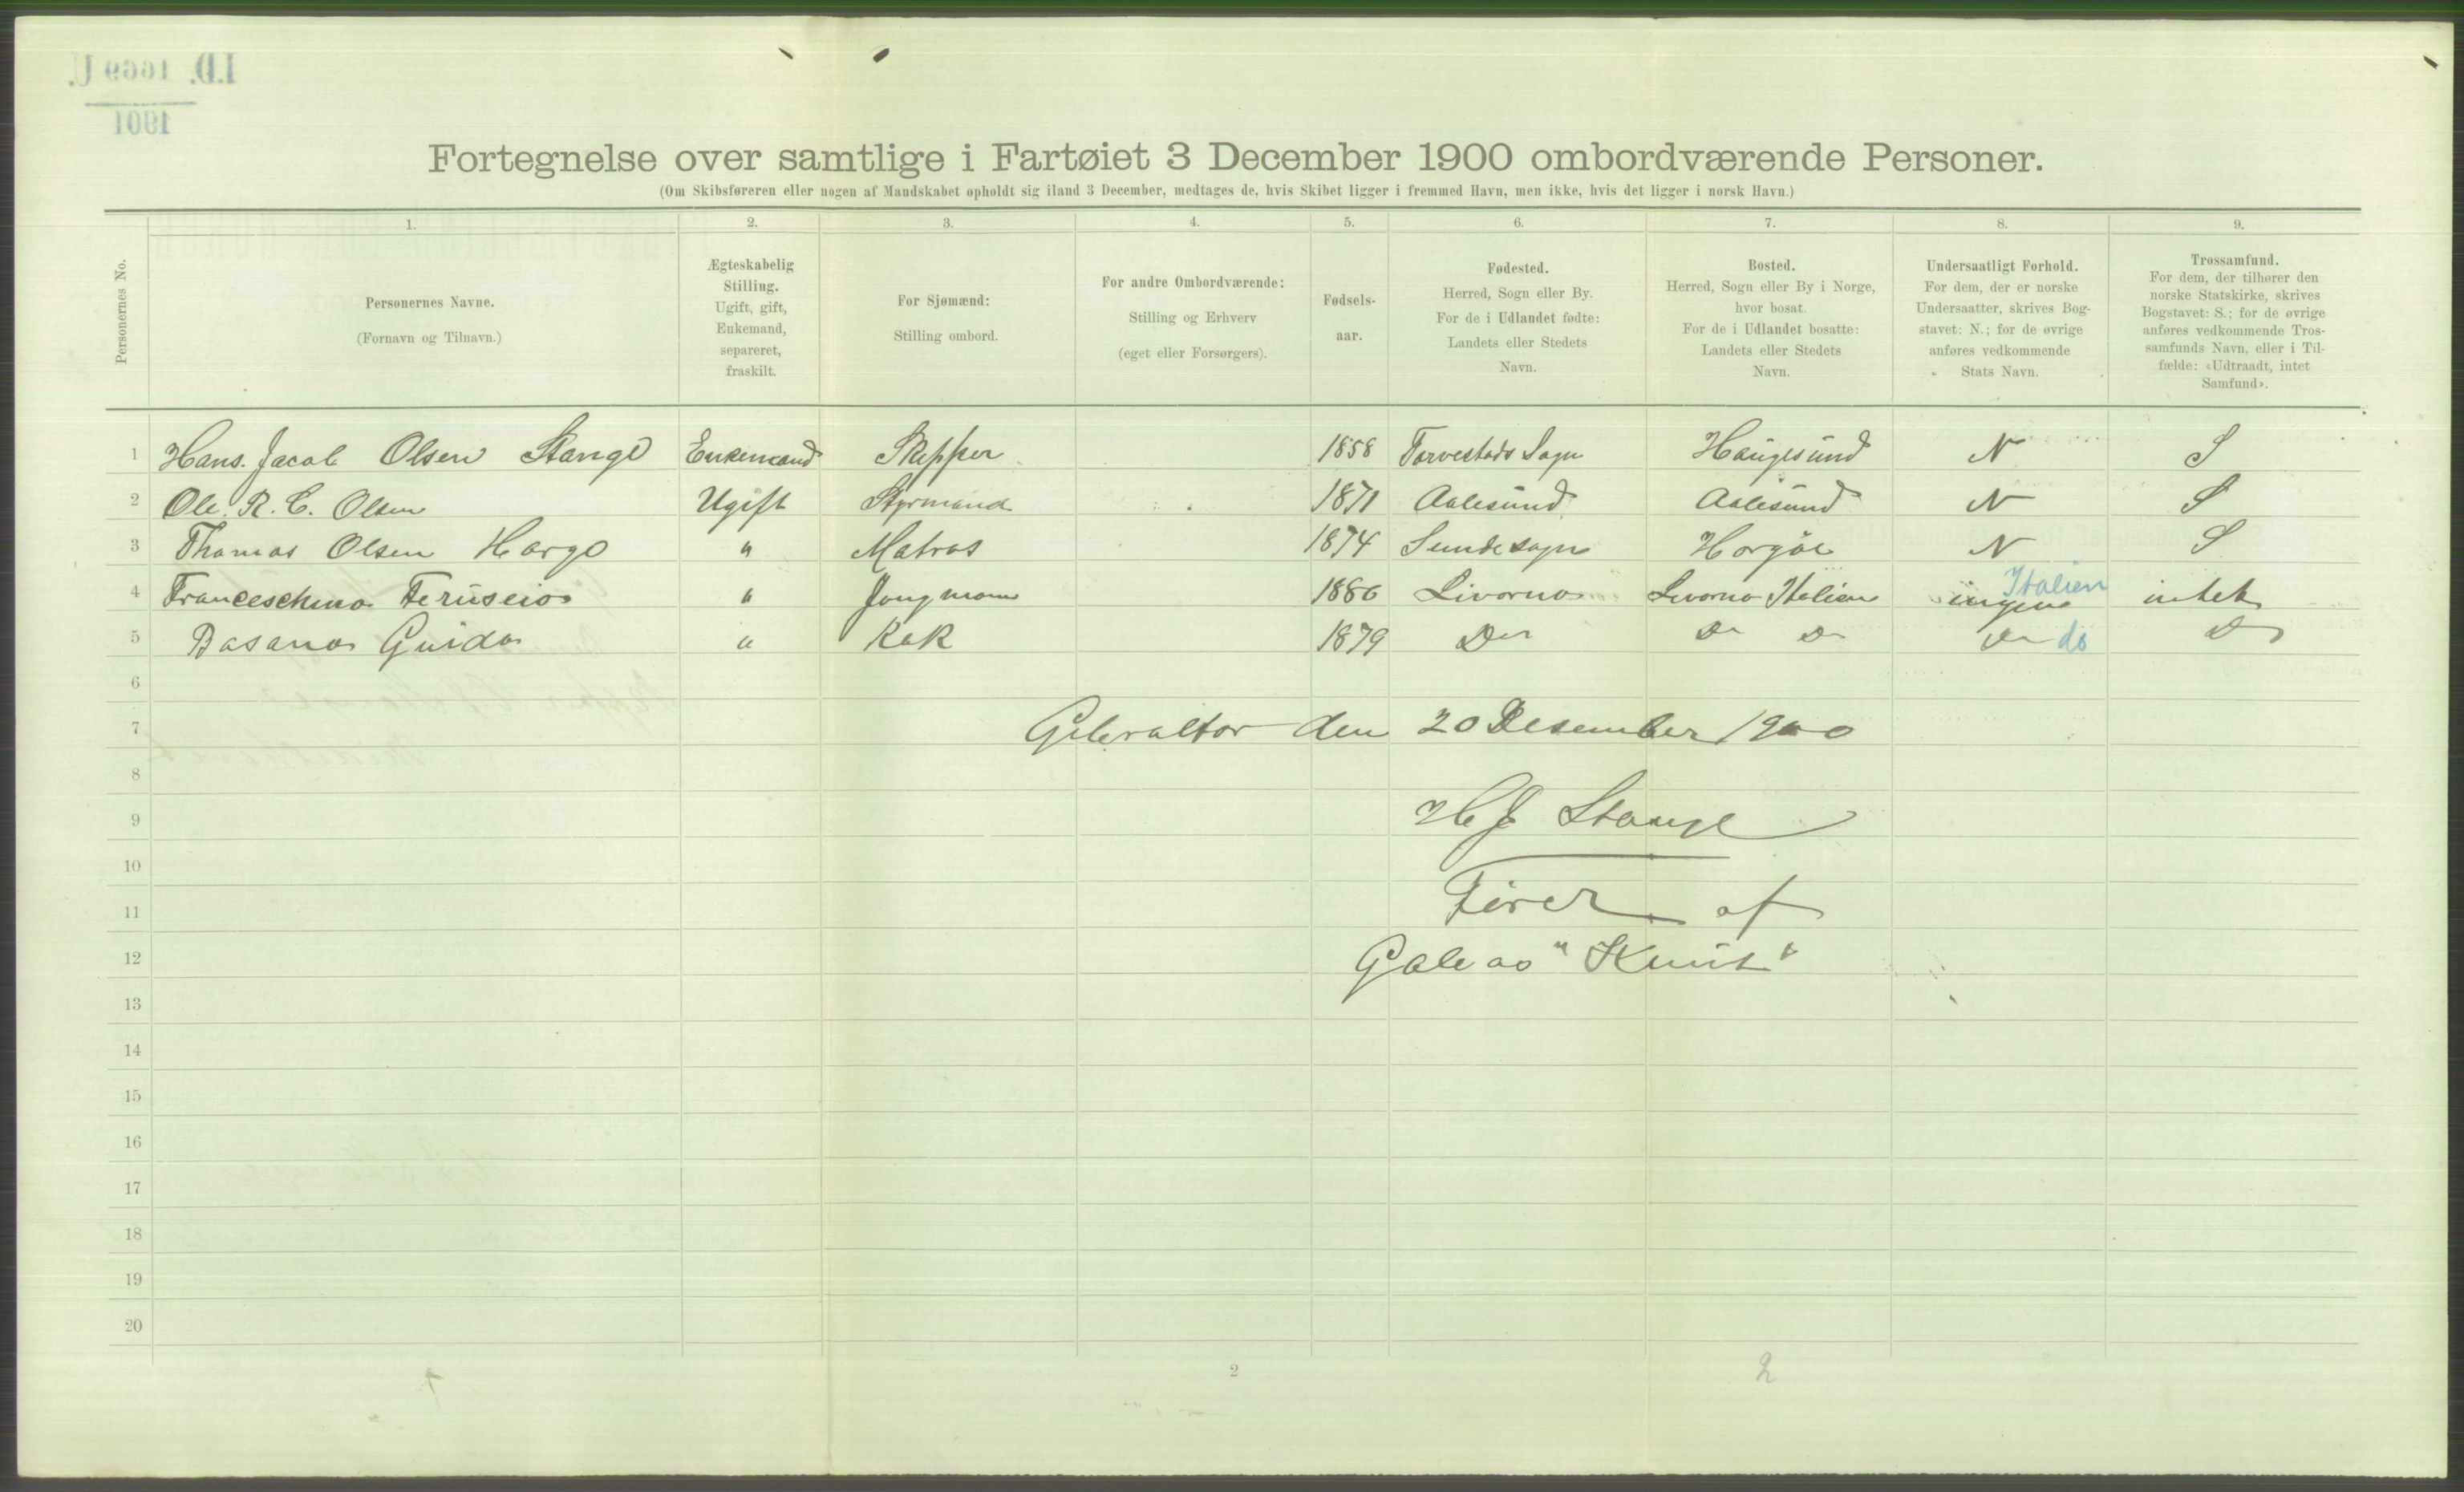 I.D. 1669 U.
1901
Fortegnelse over samtlige i Fartøiet 3 December 1900 ombordværende Personer.
(Om Skibsføreren eller nogen af Mandskabet opholdt sig iland 3 December, medtages de, hvis Skibet ligger i fremmed Havn, men ikke, hvis det ligger i norsk Havn.)
Personernes No.
1. 2. 3. 4. 5. 6. 7. 8. 9.
Personernes Navne.
(Fornavn og Tilnavn.)
Ægteskabelig
Stilling.
Ugift, gift,
Enkemand,
separeret,
fraskilt.
For Sjømænd:
Stilling ombord.
For andre Ombordværende:
Stilling og Erhverv
(eget eller Forsørgers).
Fødsels-
aar.
Fødested.
Herred, Sogn eller By.
For de i Udlandet fødte:
Landets eller Stedets
Navn.
Bosted.
Herred, Sogn eller By i Norge,
hvor bosat.
For de i Udlandet bosatte:
Landets eller Stedets
Navn.
Undersaatligt Forhold.
For dem, der er norske
Undersaatter, skrives Bog-
stavet: N.; for de øvrige
anføres vedkommende
Stats Navn.
Trossamfund.
For dem, der tilhører den
norske Statskirke, skrives
Bogstavet: S.; for de øvrige
anføres vedkommende Tros-
samfunds Navn, eller i Til-
fælde: «Udtraadt, intet
Samfund».
1 Hans. Jacob Olsen Stange Enkemand Skipper 1858 Torvestads Sogn Haugesund N S
2 Ole. R. C. Olsen Ugift Styrmand 1871 Aalesund Aalesund N S
3 Thomas Olsen Hargo " Matros 1874 Sunde sogn Horgöe N S
4 Franceschino Feruseio " Jongmann 1886 Livorno Livorno Italien ingen Italien intet
5 Basano Guido " Kok 1879 Do Do Do Do do Do
6
7 Gibraltar den 20 Desember 1900
8
9 H J Stange
10
11 Fører af
12 Galeas "Knut"
13
14
15
16
17
18
19
20
2 2